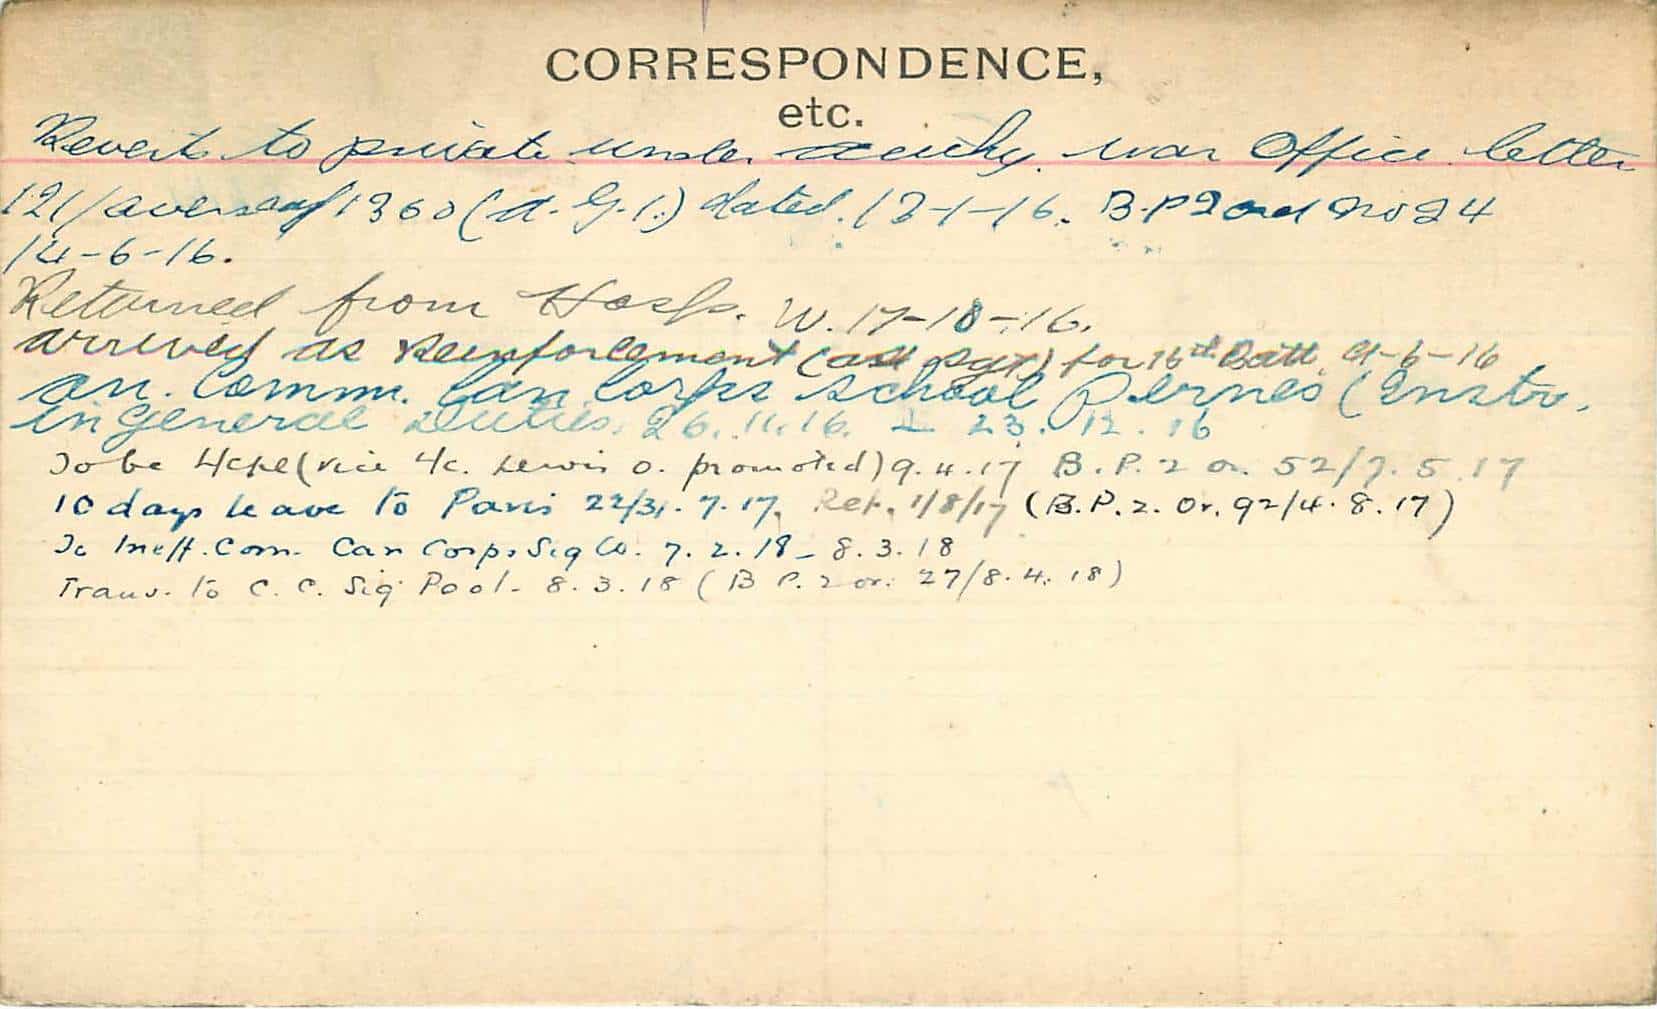 CORRESPONDENCE,
etc.
Reverts to private under authy. war Office letter
121/overseas/1360 (A.G.1.) dated. 13-1-16. B.P2 ord No 24
14-6-16.
Returned from Hosp. W. 17-10-16.
arrived as Reinforcement (as Sgt) for 16th Batt. 9-6-16
on. Comm. Can Corps School Pernes (Instr.
in General Duties. 26.11.16. 23.12.16
To be L/Cpl (vice L/c. Lewis O. promoted) 9.4.17 B.P.2 Or. 52/7.5.17
10 days leave to Paris 22/31.7.17. Ret. 1/8/17 (B.P.2. Or. 92/4.8.17)
To Ineff. Com. Can Corps Sig Co. 7.2.18 - 8.3.18
Trans. to C.C. Sig Pool - 8.3.18 (B.P.2 or. 27/8.4.18)